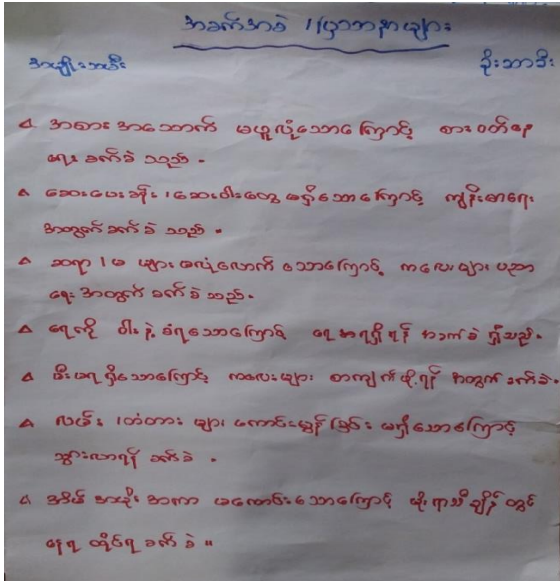 အခက်အခဲ / ပြဿနာများ
အမျိုးသမီး ခိုးဘာဒီး
အစားအသောက် မဖူလုံသောကြောင့် စားဝတ်နေ
ရေး ခက်ခဲ သည်။
ဆေးပေးခန်း / ဆေးဝါးတွေ မရှိသောကြောင့် ကျန်းမာရေး
အတွက် ခက်ခဲ သည်။
ဆရာ / မ များ မလုံလောက် သောကြောင့် ကလေးများ ပညာ
ရေး အတွက် ခက်ခဲ သည်။
ရေကို ဝါးနဲ့ ခံရသောကြောင့် ရေအရရှိရန် အခက်ခဲ ရှိသည်။
မီးမရှိသောကြောင့် ကလေးများ စာကျက်ဖို့ရန် အတွက် ခက်ခဲ။
လမ်း / တံတား များ ကောင်းမွန်ခြင်း မရှိသောကြောင့်
သွားလာရန် ခက်ခဲ ။
အိမ် အမိုးအကာ မကောင်းသောကြောင့် မိုးရာသီချိန် တွင်
နေရ ထိုင်ရ ခက်ခဲ ။